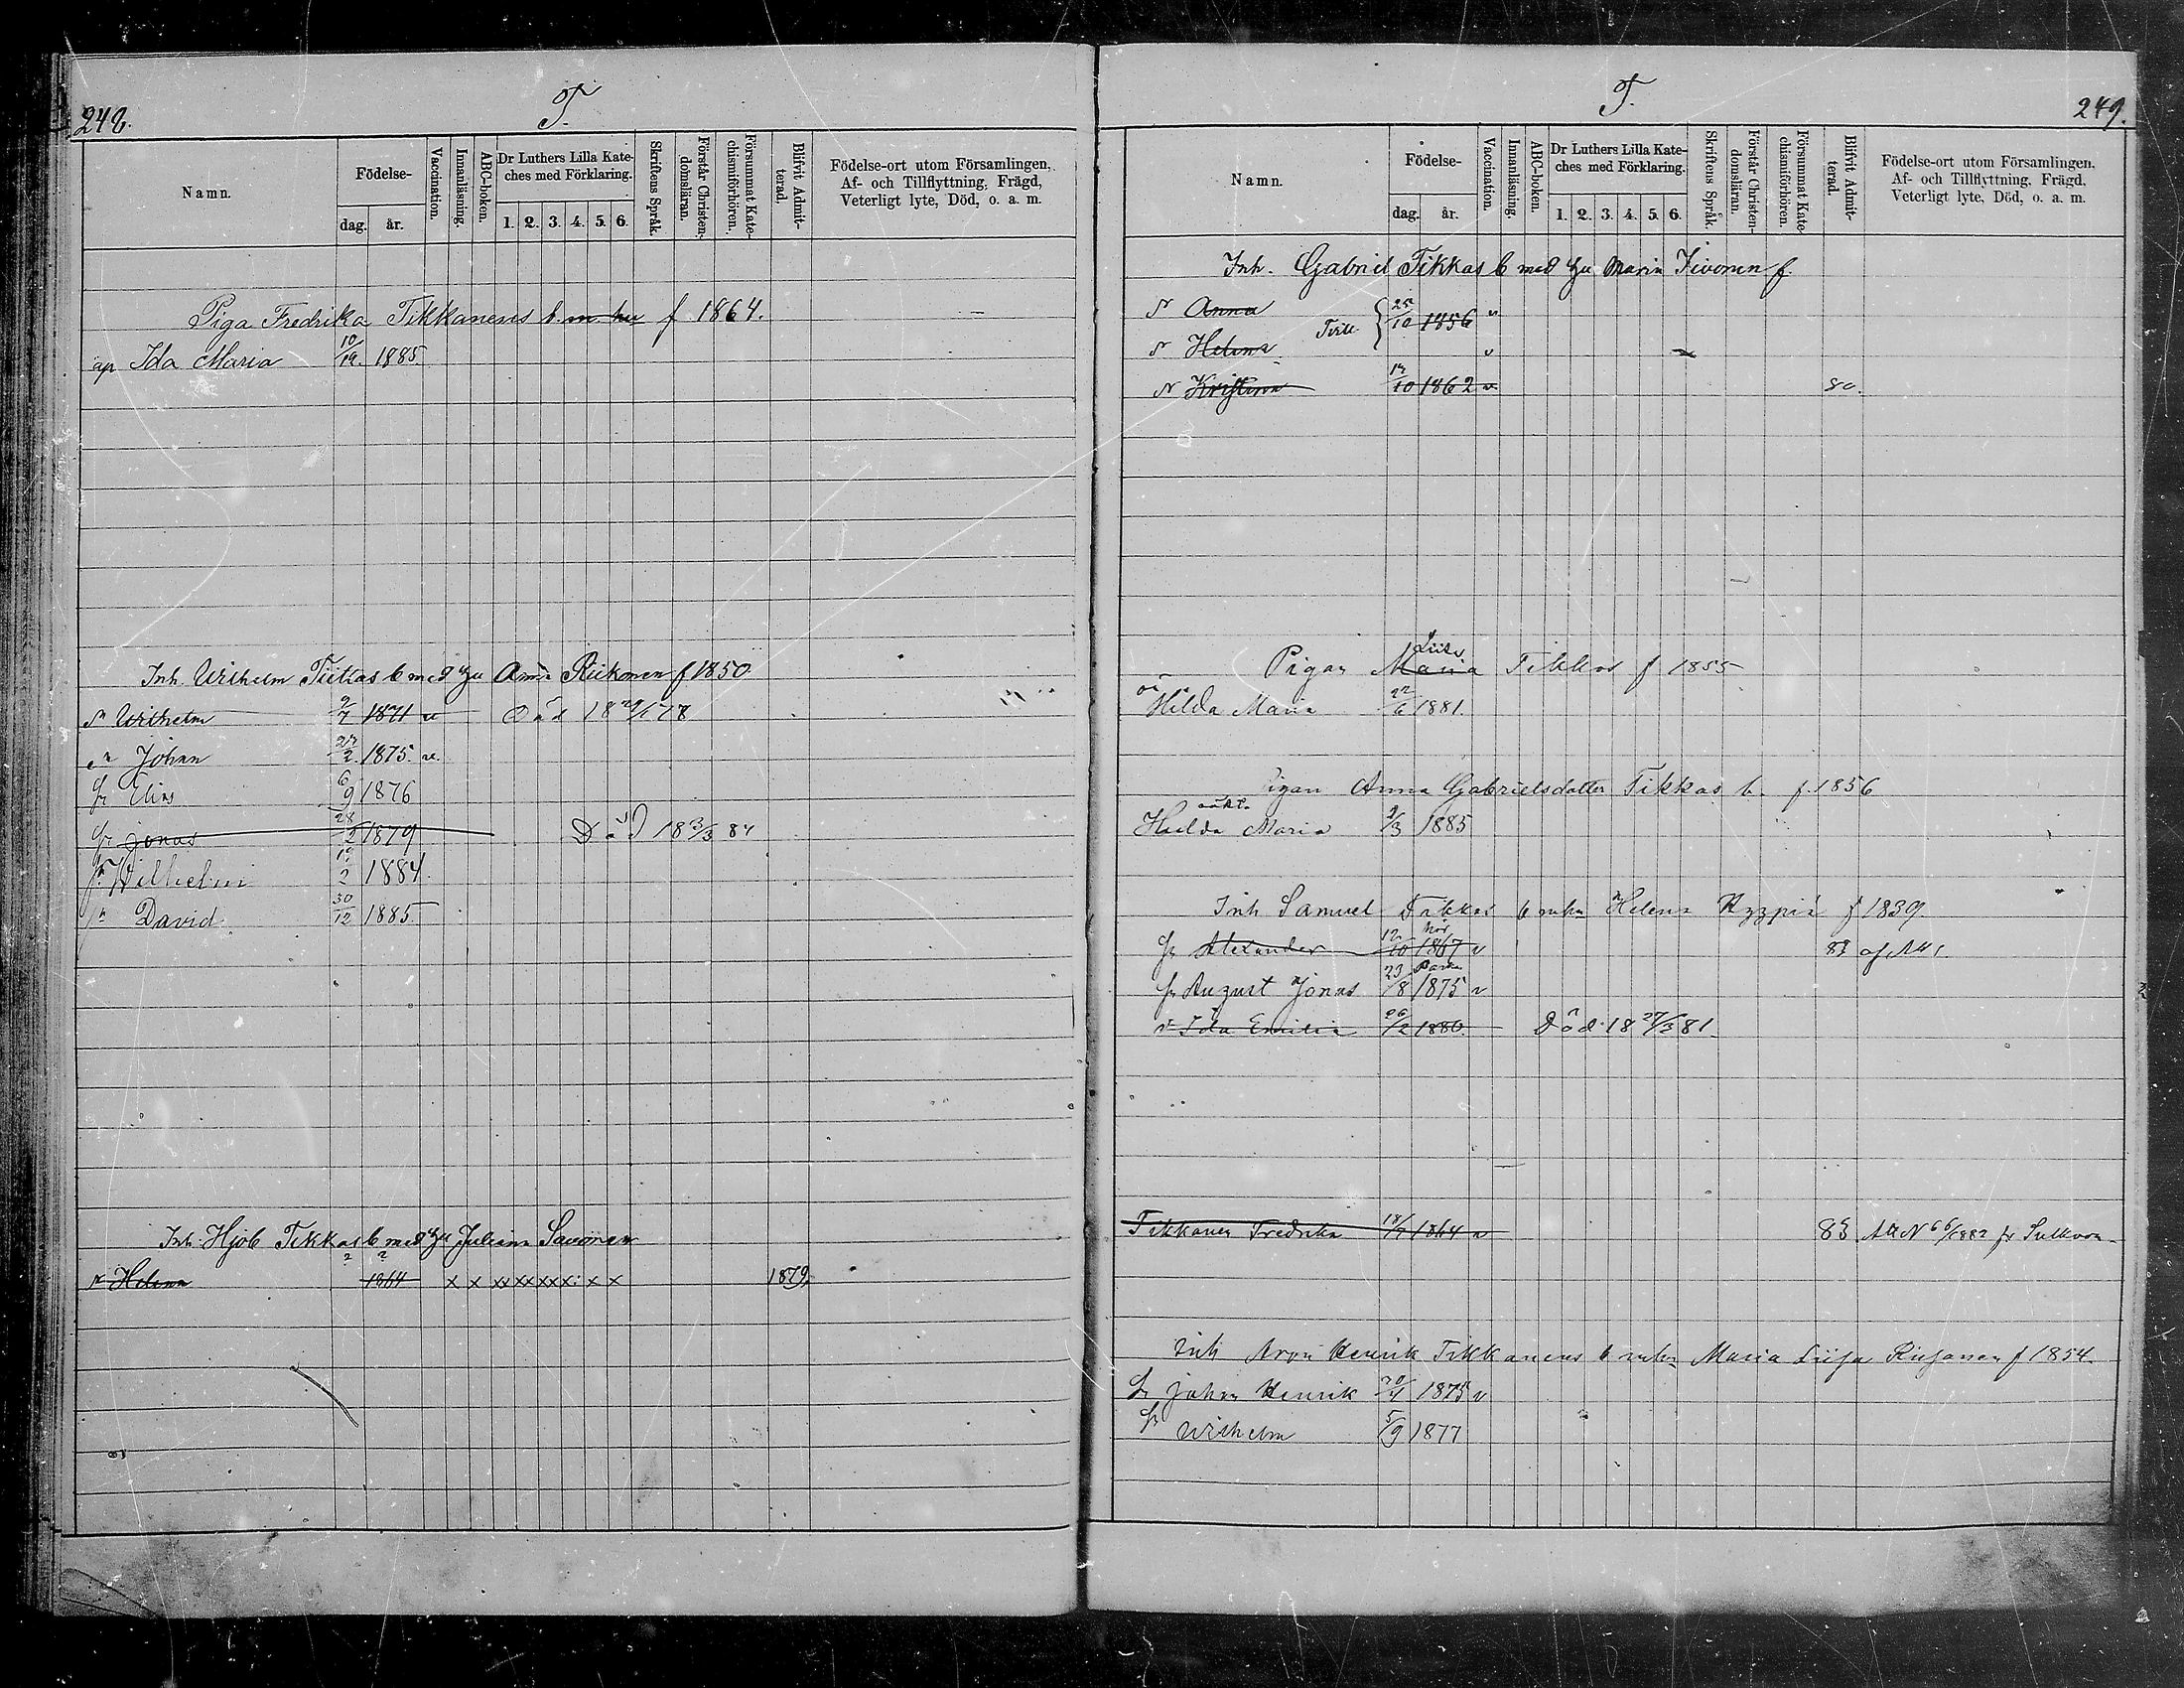 248.
T.
Namn.
Födelse-
dag. år.
Vaccination.
Innanläsning.
ABC-boken.
Dr Luthers Lilla Kate-
ches med Förklaring.
1. 2. 3. 4. 5. 6.
Skriftens Språk.
Förstår Christen-
domsläran.
Försummat Kate-
chismiförhören.
Blifvit Admit-
terad.
Födelse-ort utom Församlingen,
Af- och Tillflyttning, Frägd,
Veterligt lyte, Död, o. a. m.
Piga Fredrika Tikkanens b. m. hu f 1864.
äp Ida Maria 10/12. 1885.
Inh. Wilhelm Tikkas b med hu Anna f 1850
Wilhelm 9/7 1871 v Död 18 29/1 78
Johan 27/2. 1875. v.
Sr Elias 6/9 1876
Sr Jonas 28/2 1879 Död 18 3/3 84
Wilhelm 1884.
David 30/12 1885
Inh. Hjob Tikkas b med hu Juliana Savonen
Helena 1864 x x xx xx xx x x 1879.
T.
249.
Namn.
Födelse-
dag. år.
Vaccination.
Innanläsning.
ABC-boken.
Dr Luthers Lilla Kate-
ches med Förklaring.
1. 2. 3. 4. 5. 6.
Skriftens Språk.
Förstår Christen-
domsläran.
Försummat Kate-
chismiförhören.
Blifvit Admit-
terad.
Födelse-ort utom Församlingen,
Af- och Tillflyttning, Frägd,
Veterligt lyte, Död, o. a. m.
Inh. Gabriel Tikkas b med hu Maria f.
Anna 25/10 1856 v
Helena v
Kristina 10 1862 v 80.
Liisa
Pigan Maria Tikkas f 1855
oä Hilda Maria 22/6 1881.
Pigan Anna Gabrielsdotter Tikkas b. f. 1856
oäkt.
Hilda Maria 2/3 1885
Inh Samuel Tikkas b mhu Helena Ryppiä f 1839
Sr Alexander 12/10 1867 v
Sr August Jonas 23/8 1875 v
Ida Emilia 26/2 1880. Död 18 27/3 81.
Tikkanen Fredrika 18/7 1864 v
Inh Aron Henrik Tikkanens b mhu Maria Liisa f 1854.
Sr Johan Henrik 1875 v
Sr Wilhelm 5/9 1877